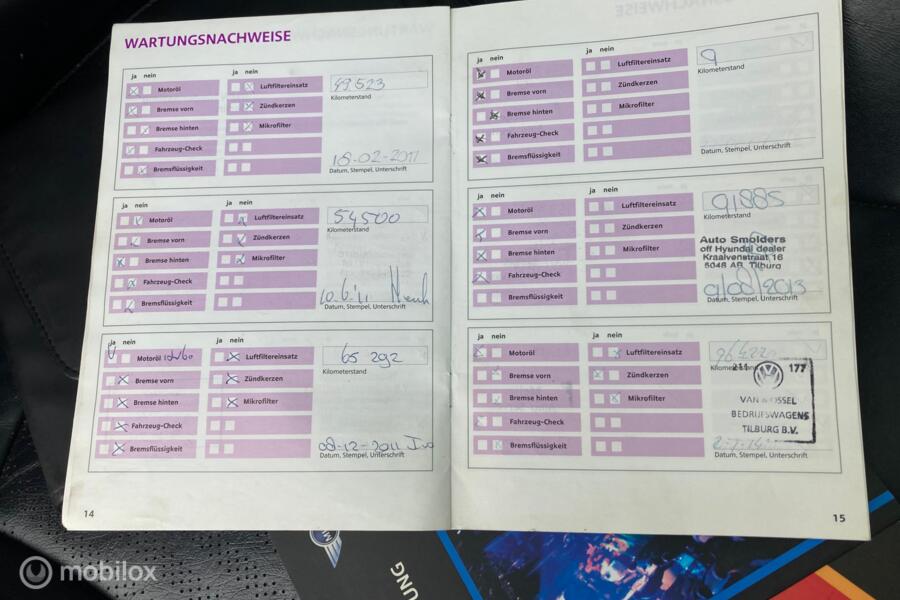 WARTUNGSNACHWEISE
ja nein
ja nein
Motoröl
Luftfiltereinsatz
49523
Bremse vorn
Zündkerzen
Kilometerstand
Bremse hinten
Mikrofilter
Fahrzeug-Check
18-02-2011
Bremsflüssigkeit
Datum, Stempel, Unterschrift
ja nein
ja nein
Motoröl
Luftfiltereinsatz
54500
Bremse vorn
Zündkerzen
Kilometerstand
Bremse hinten
Mikrofilter
Fahrzeug-Check
10.6.11
Bremsflüssigkeit
Datum, Stempel, Unterschrift
ja nein
ja nein
Motoröl
Luftfiltereinsatz
65 292
Bremse vorn
Zündkerzen
Kilometerstand
Bremse hinten
Mikrofilter
Fahrzeug-Check
08-12-2011
Bremsflüssigkeit
Datum, Stempel, Unterschrift
14
ja nein
ja nein
Motoröl
Luftfiltereinsatz
9
Bremse vorn
Zündkerzen
Kilometerstand
Bremse hinten
Mikrofilter
Fahrzeug-Check
Bremsflüssigkeit
Datum, Stempel, Unterschrift
ja nein
ja nein
Motoröl
Luftfiltereinsatz
91885
Bremse vorn
Zündkerzen
Kilometerstand
Bremse hinten
Mikrofilter
Auto Smolders
off Hyundai dealer
Kraaivenstraat 16
5048 AB Tilburg
Fahrzeug-Check
Bremsflüssigkeit
Datum, Stempel, Unterschrift
ja nein
ja nein
Motoröl
Luftfiltereinsatz
Bremse vorn
Zündkerzen
Kilometerstand
211 177
Bremse hinten
Mikrofilter
VAN MOSSEL
BEDRIJFSWAGENS
TILBURG B.V.
Fahrzeug-Check
Bremsflüssigkeit
Datum, Stempel, Unterschrift
15
UNG
mobilox